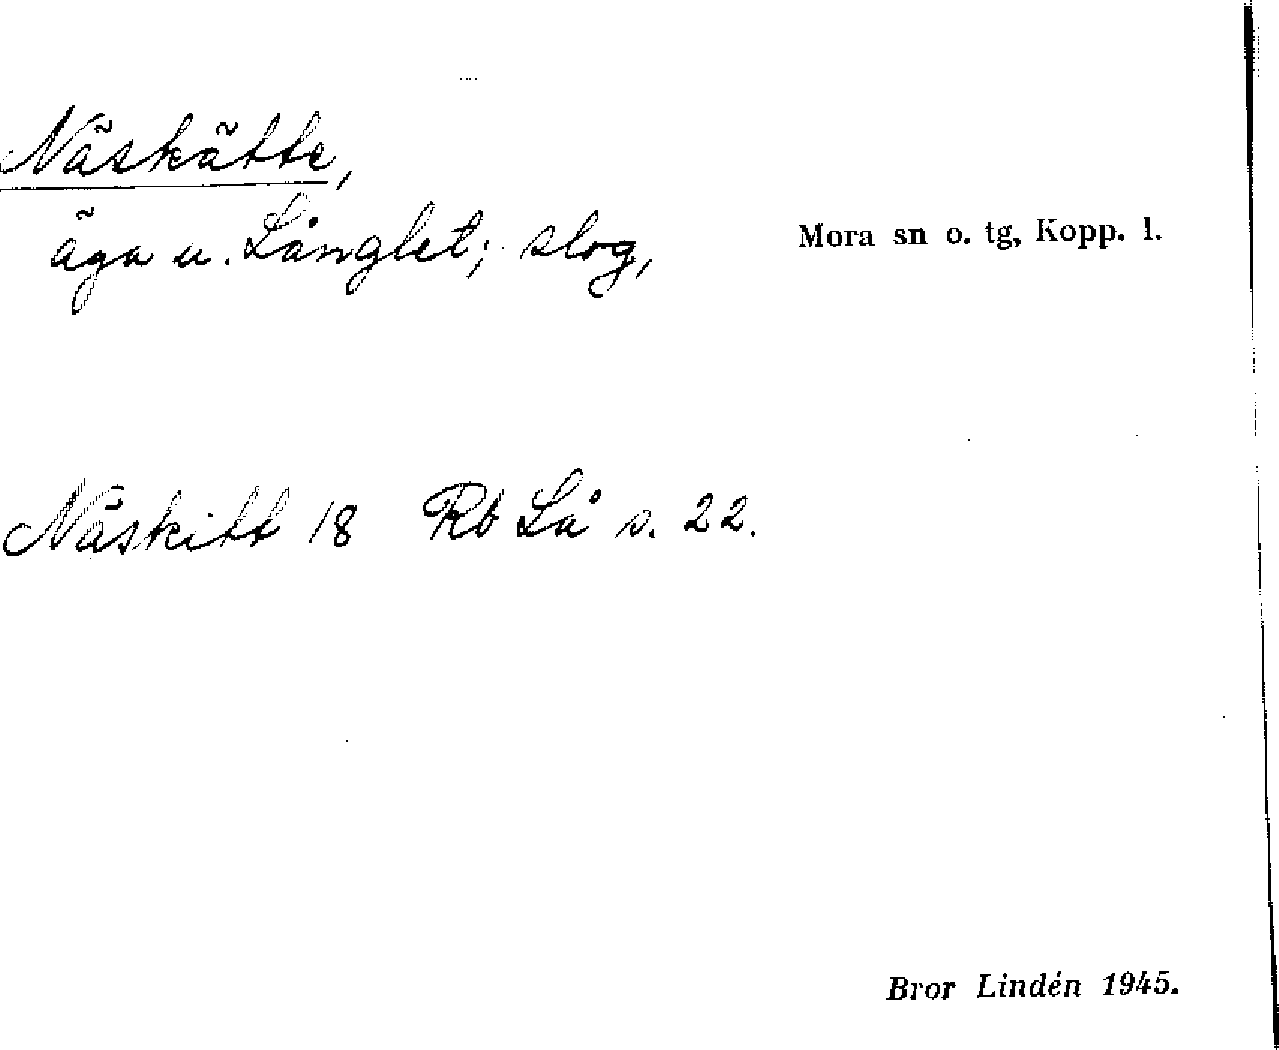 Näskätte,
äga u. Långlet; slog,
Mora sn o. tg, Kopp. l.
Näskitt 18 Rb Lå s. 22.
Bror Lindén 1945.